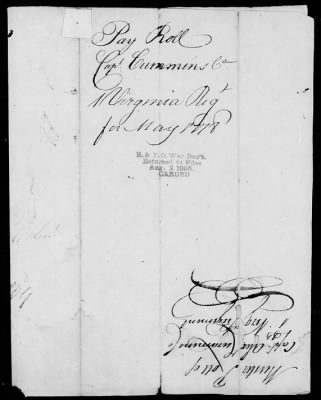 Pay Roll
Capt Cummens Co
1t Virginia Regt
for May 1778
R. & P. O. War Dep't.
Returned to Files
Aug. 2 1895.
CARDED
Muster Roll of
Capt Alexr Cummens Co
1 Virg Regiment